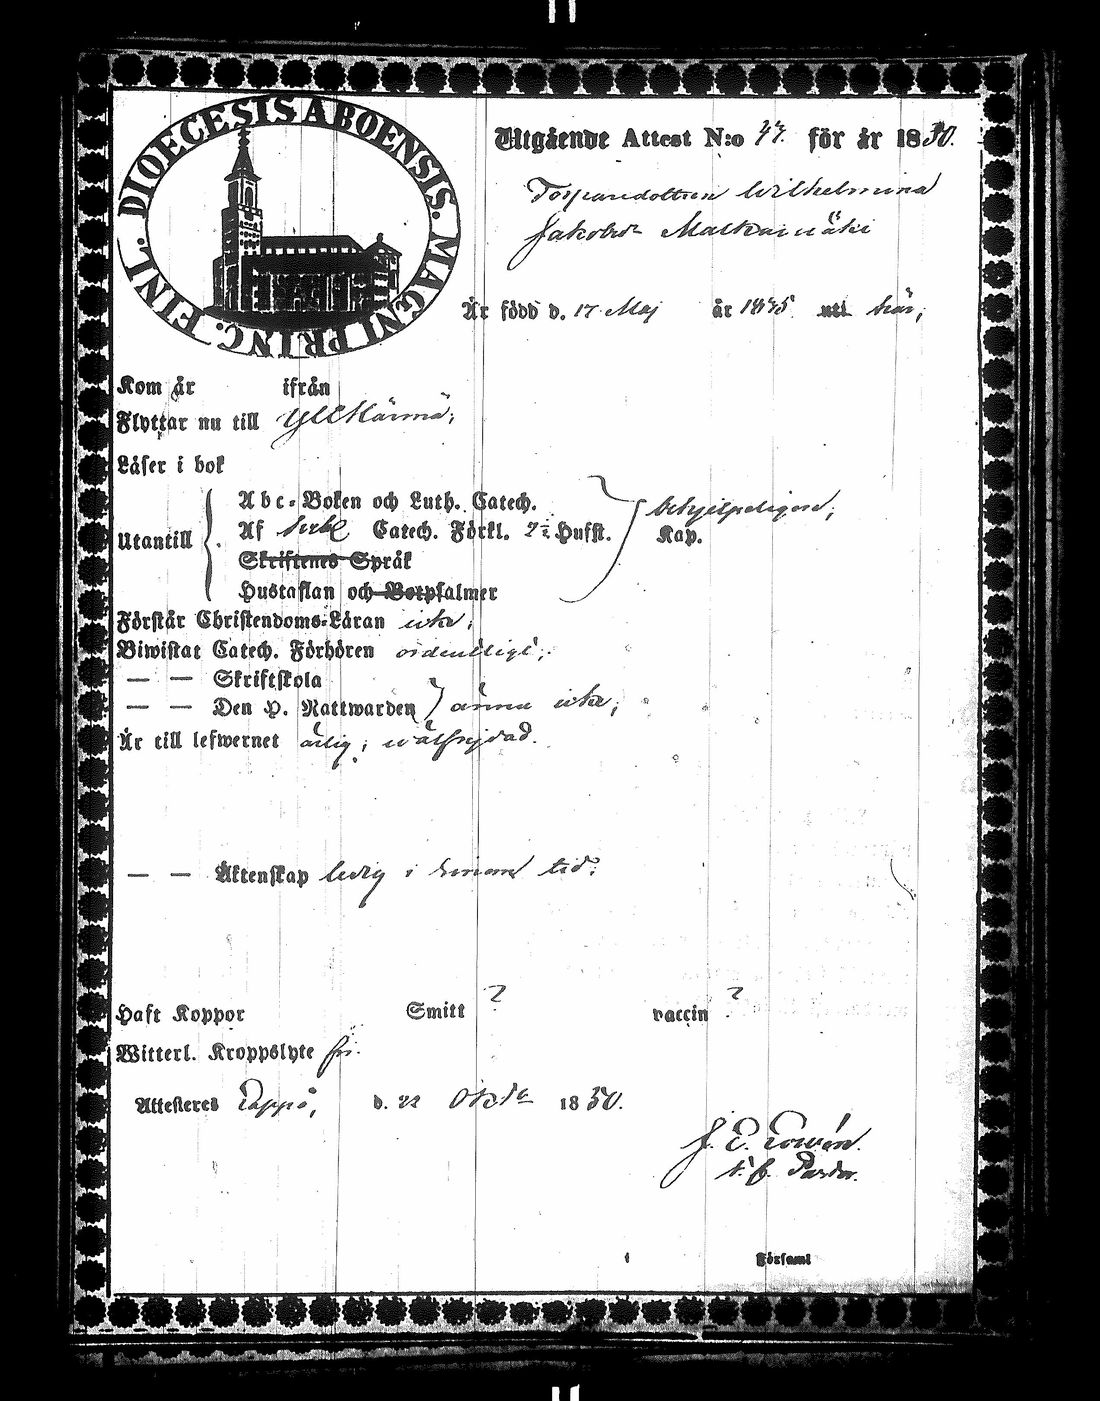 DIOECESIS ABOENSIS. MAGNI PRINC. FINL.
Utgående Attest N:o 47. för år 1850.
Torparedottren Wilhelmina
Jakobsdr
Är född d. 17 Maj år 1835 uti här;
Kom år ifrån
Flyttar nu till Yllkärmä;
Läser i bok
Abc-Boken och Luth. Catech.
Utantill Af Catech. Förkl. Husst. Kap.
behjelpeligen;
Skriftenes Språk
Hustaflan och Botpsalmer
Förstår Christendoms-Läran icke;
Biwistat Catech. Förhören ordentligt;
— — Skriftskola
— — Den H. Nattwarden ännu icke;
Är till lefwernet ärlig; wälfrejdad.
— — Äktenskap ledig i tid;
Haft Koppor Smitt ? vaccin ?
Witterl. Kroppslyte fri.
Attesteres Lappo, d. 22 1850.
J. E.
t. f. Pastor.
Församl